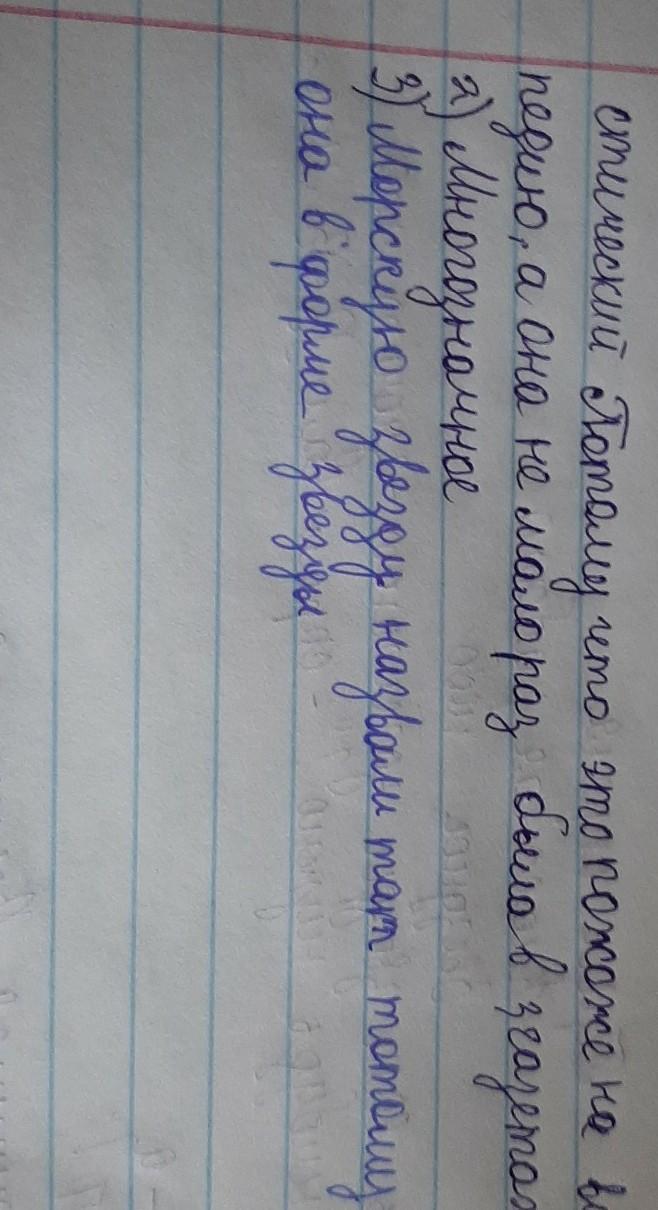 стический Потому что это похоже на
педию, а она не мало раз была в згазетах
2) Многозначное
3) Морскую звезду назвали так потому
она в форме звезды